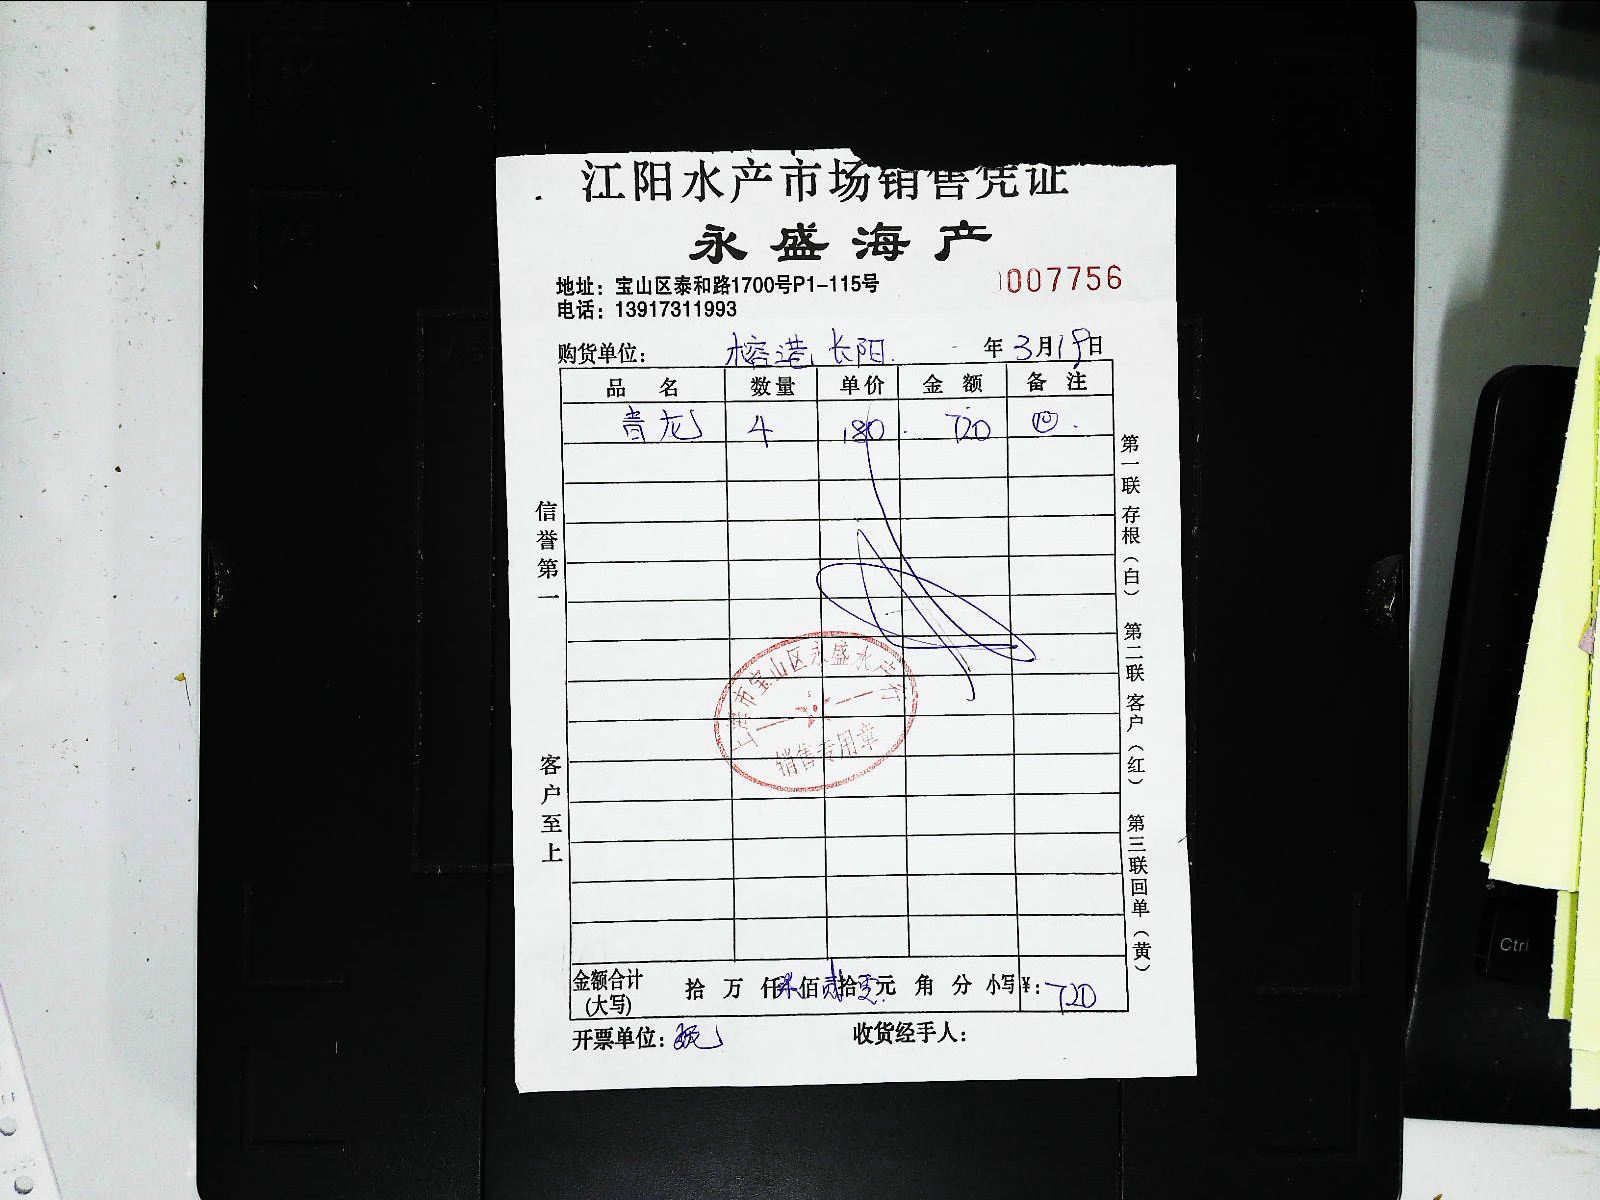 江阳水产市场销售凭证
永盛海产
地址：宝山区泰和路1700号P1-115号
007756
电话：13917311993
购货单位：榕港 长阳 年3月19日
品名 数量 单价 金额 备注
青龙 4 180 720
信誉第一
客户至上
第一联 存根（白） 第二联 客户（红） 第三联回单（黄）
上海市宝山区永盛水产行
销售专用章
金额合计（大写） 拾 万 仟 柒佰 贰拾 零元 角 分 小写¥：720
开票单位： 收货经手人：
Ctrl